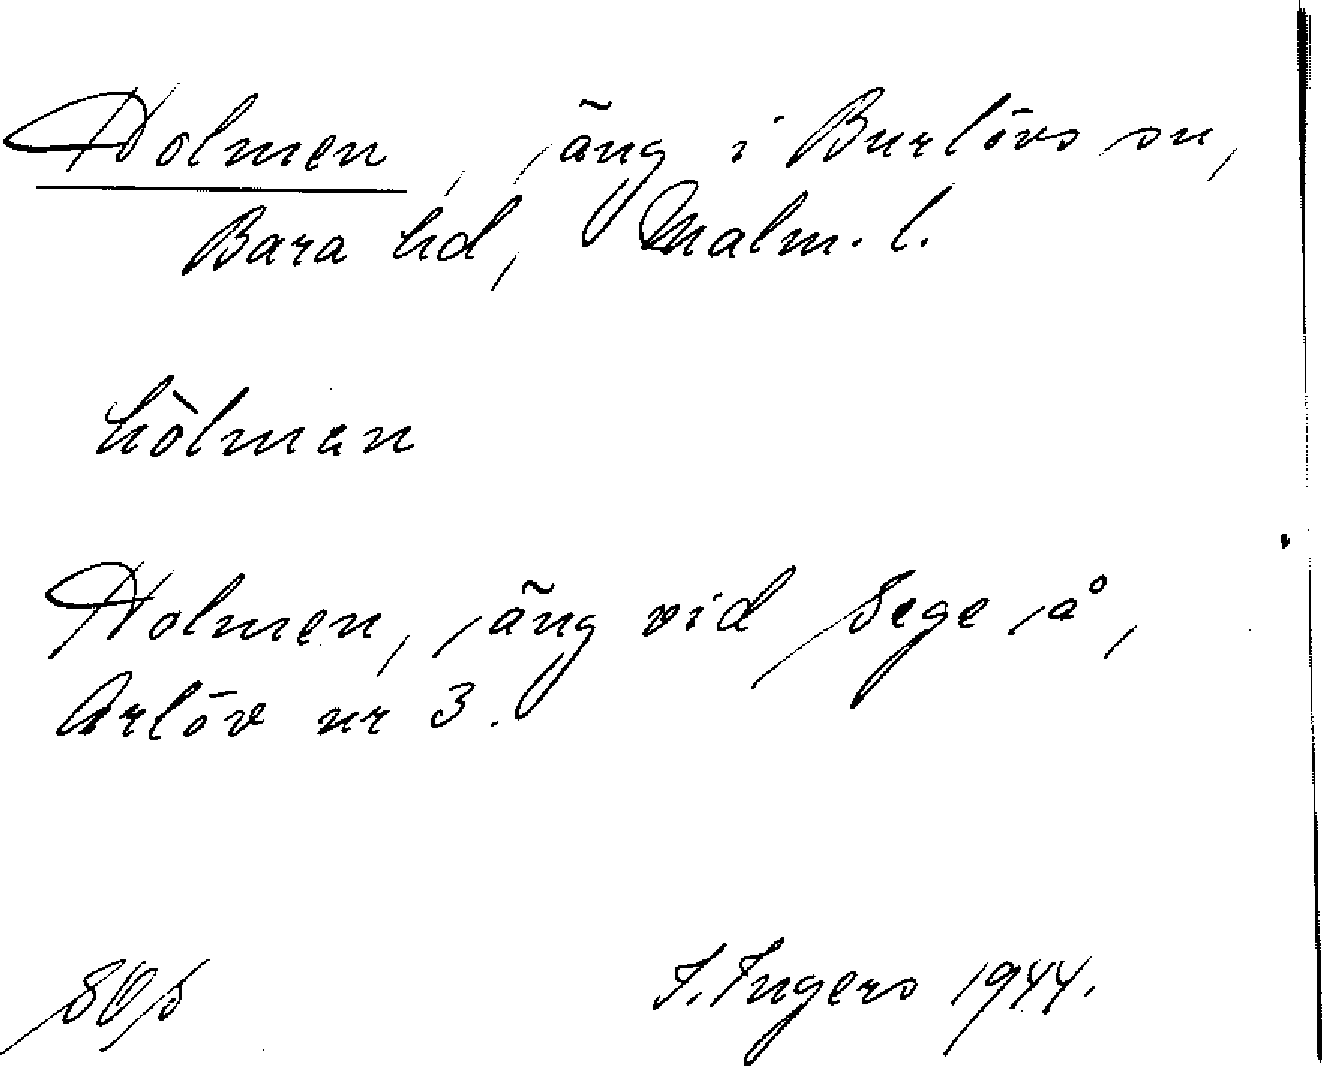 Holmen, äng i Burlövs sn,
Bara hd, Malm. l.
hòlmэn
Holmen, äng vid Sege å,
Arlöv nr 3.
I. Ingers 1944.